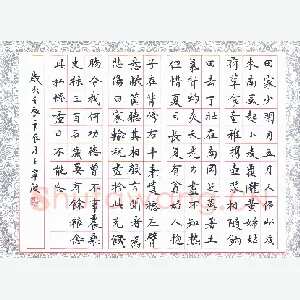 田家少閑月五月人倍忙夜
来南風起小麦覆隴黄婦姑
荷箪食童稚携壺漿相随餉
田去丁壮在南岡足蒸暑土
氣背灼炎天光力盡不知熱
但惜夏日長復有貧婦人抱
子在其旁右手秉遺穗左臂
懸敝筐聽其相顧言聞者為
悲傷家田輸税盡拾此充饑
腸今我何功德曾不事農桑
吏禄三百石歲晏有餘粮念
此私自愧盡日不能忘